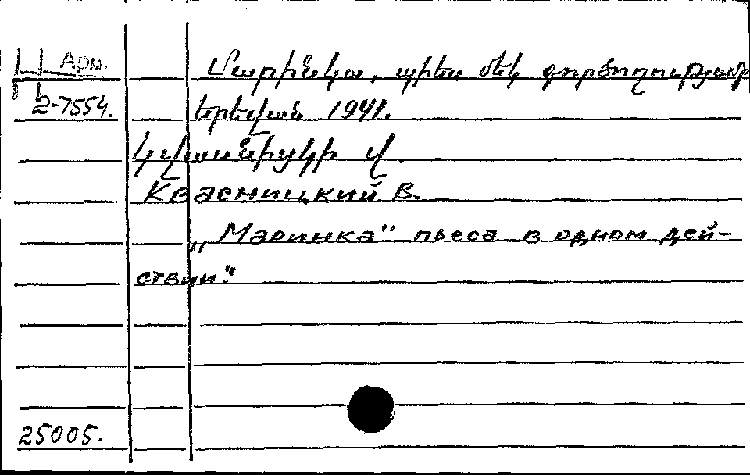 Арм.
2-7554.
Մարինկա, պիես մեկ գործողությամբ
Երևան 1941.
Կվասնիցկի Վ.
Квасницкий В.
„Маринка" пьеса в одном дей-
ствии".
25005.